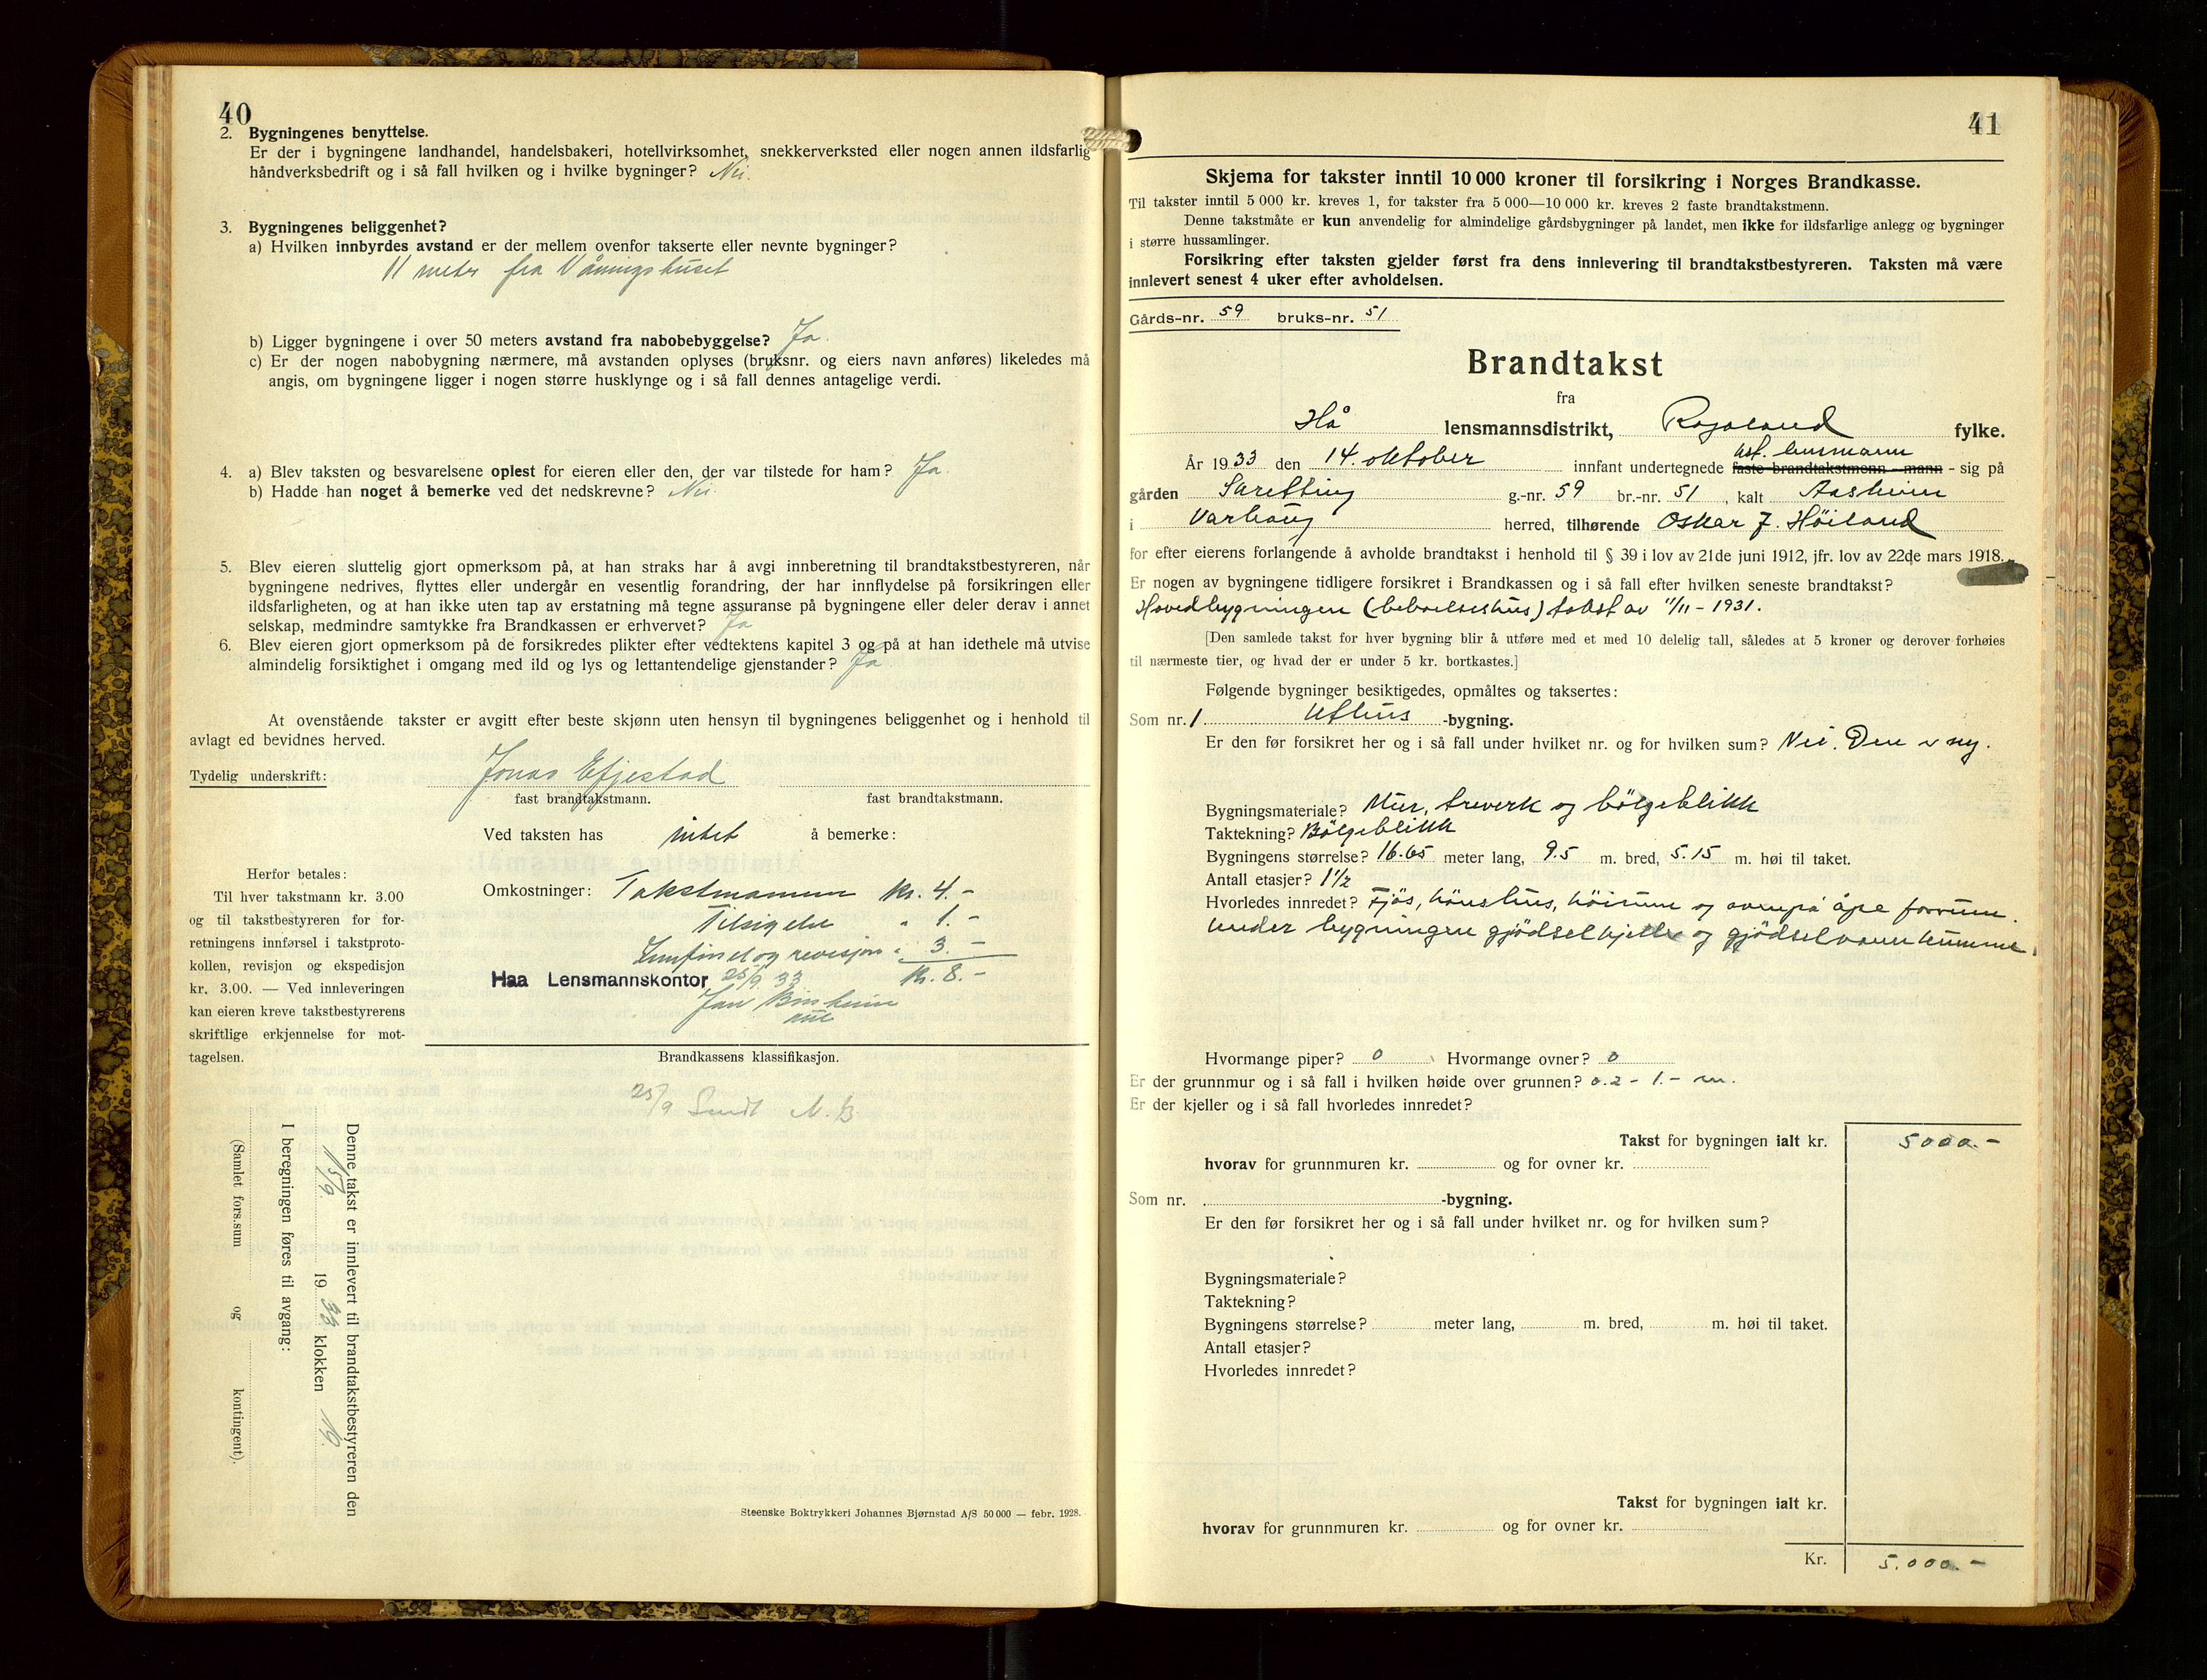 40
2. Bygningenes benyttelse.
Er der i bygningene landhandel, handelsbakeri, hotellvirksomhet, snekkerverksted eller nogen annen ildsfarlig
håndverksbedrift og i så fall hvilken og i hvilke bygninger? Nei.
3. Bygningenes beliggenhet?
a) Hvilken innbyrdes avstand er der mellem ovenfor takserte eller nevnte bygninger?
11 meter fra Våningshuset
b) Ligger bygningene i over 50 meters avstand fra nabobebyggelse? Ja.
c) Er der nogen nabobygning nærmere, må avstanden oplyses (bruksnr. og eiers navn anføres) likeledes må
angis, om bygningene ligger i nogen større husklynge og i så fall dennes antagelige verdi.
4. a) Blev taksten og besvarelsene oplest for eieren eller den, der var tilstede for ham? Ja.
b) Hadde han noget å bemerke ved det nedskrevne? Nei.
5. Blev eieren sluttelig gjort opmerksom på, at han straks har å avgi innberetning til brandtakstbestyreren, når
bygningene nedrives, flyttes eller undergår en vesentlig forandring, der har innflydelse på forsikringen eller
ildsfarligheten, og at han ikke uten tap av erstatning må tegne assuranse på bygningene eller deler derav i annet
selskap, medmindre samtykke fra Brandkassen er erhvervet? Ja
6. Blev eieren gjort opmerksom på de forsikredes plikter efter vedtektens kapitel 3 og på at han idethele må utvise
almindelig forsiktighet i omgang med ild og lys og lettantendelige gjenstander? Ja
At ovenstående takster er avgitt efter beste skjønn uten hensyn til bygningenes beliggenhet og i henhold til
avlagt ed bevidnes herved.
Tydelig underskrift: Jonas Efjestad
fast brandtakstmann. fast brandtakstmann.
Ved taksten has intet å bemerke:
Herfor betales:
Til hver takstmann kr. 3.00
og til takstbestyreren for for-
retningens innførsel i takstproto-
kollen, revisjon og ekspedisjon
kr. 3.00. — Ved innleveringen
kan eieren kreve takstbestyrerens
skriftlige erkjennelse for mot-
tagelsen.
Omkostninger: Takstmannen Kr. 4.-
Tilsigelse " 1.-
Innførsel og revisjon " 3.-
Haa Lensmannskontor 25/9. 33 Kr. 8.-
Jan
Brandkassens klassifikasjon.
25/9 Sendt N. B
Denne takst er innlevert til brandtakstbestyreren den
15/9. 1933 klokken 19.
I beregningen føres til avgang:
(Samlet fors.sum og kontingent).
Steenske Boktrykkeri Johannes Bjørnstad A/S 50 000 — febr. 1928.
41
Skjema for takster inntil 10 000 kroner til forsikring i Norges Brandkasse.
Til takster inntil 5 000 kr. kreves 1, for takster fra 5 000—10 000 kr. kreves 2 faste brandtakstmenn.
Denne takstmåte er kun anvendelig for almindelige gårdsbygninger på landet, men ikke for ildsfarlige anlegg og bygninger
i større hussamlinger.
Forsikring efter taksten gjelder først fra dens innlevering til brandtakstbestyreren. Taksten må være
innlevert senest 4 uker efter avholdelsen.
Gårds-nr. 59 bruks-nr. 51
Brandtakst
fra
Hå lensmannsdistrikt, Rogaland fylke.
ast. lensmann
År 1933 den 14. oktober innfant undertegnede faste brandtakstmenn - mann - sig på
gården Skretting g.-nr. 59 br.-nr. 51, kalt Aasheim
i Varhaug herred, tilhørende Oskar J. Höiland
for efter eierens forlangende å avholde brandtakst i henhold til § 39 i lov av 21de juni 1912, jfr. lov av 22de mars 1918.
Er nogen av bygningene tidligere forsikret i Brandkassen og i så fall efter hvilken seneste brandtakst?
Hovedbygningen (beboelseshus) takst av 11/11 - 1931.
[Den samlede takst for hver bygning blir å utføre med et med 10 delelig tall, således at 5 kroner og derover forhøies
til nærmeste tier, og hvad der er under 5 kr. bortkastes.]
Følgende bygninger besiktigedes, opmåltes og taksertes:
Som nr. 1 Uthus -bygning.
Er den før forsikret her og i så fall under hvilket nr. og for hvilken sum? Nei. Den er ny.
Bygningsmateriale? Mur, treverk og bölgeblikk
Taktekning? Bölgeblikk
Bygningens størrelse? 16.65 meter lang, 9.5 m. bred, 5.15 m. høi til taket.
Antall etasjer? 1 1/2
Hvorledes innredet? Fjös, hönshus, höirum og ovenpå åpe forrum.
Under bygningen gjödselkjeller og gjödselvannkumme.
Hvormange piper? 0 Hvormange ovner? 0
Er der grunnmur og i så fall i hvilken høide over grunnen? 0.2 - 1.- m.
Er der kjeller og i så fall hvorledes innredet?
Takst for bygningen ialt kr. 5000.-
hvorav for grunnmuren kr. og for ovner kr.
Som nr. -bygning.
Er den før forsikret her og i så fall under hvilket nr. og for hvilken sum?
Bygningsmateriale?
Taktekning?
Bygningens størrelse? meter lang, m. bred, m. høi til taket.
Antall etasjer?
Hvorledes innredet?
Takst for bygningen ialt kr.
hvorav for grunnmuren kr. og for ovner kr.
Kr. 5.000.-